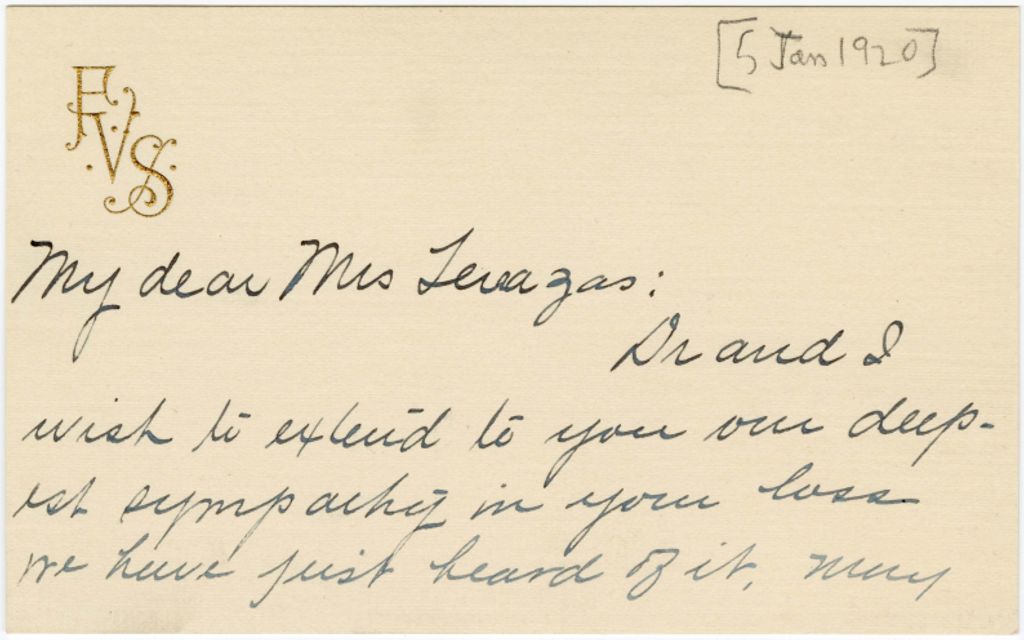 [5 Jan 1920]
FVS
My dear Mrs Levazas:
Dr and I
wish to extend to you our deep-
est sympathy in your loss
we have just heard of it. may